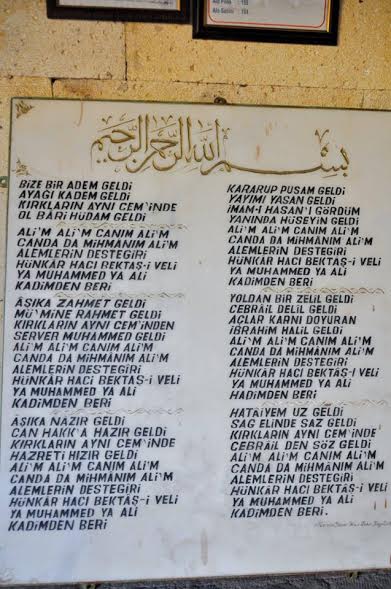 بسم الله الرحمن الرحيم
BİZE BİR ADEM GELDİ
AYAĞI KADEM GELDİ
KIRKLARIN AYNI CEM'İNDE
OL BÂRİ HÜDAM GELDİ
ALİ'M ALİ'M CANIM ALİ'M
CANDA DA MİHMÂNIM ALİ'M
ALEMLERİN DESTEGİRİ
HÜNKÂR HACI BEKTAŞ-I VELİ
YA MUHAMMED YA ALİ
KADİMDEN BERİ
ÂŞIKA ZAHMET GELDİ
MÜ'MİNE RAHMET GELDİ
KIRKLARIN AYNI CEM'İNDEN
SERVER MUHAMMED GELDİ
ALİ'M ALİ'M CANIM ALİ'M
CANDA DA MİHMÂNIM ALİ'M
ALEMLERİN DESTEGİRİ
HÜNKÂR HACI BEKTAŞ-I VELİ
YA MUHAMMED YA ALİ
KADİMDEN BERİ
ÂŞIKA NAZIR GELDİ
CAN HAKİK'A HAZIR GELDİ
KIRKLARIN AYNI CEM'İNDE
HAZRETİ HIZIR GELDİ
ALİ'M ALİ'M CANIM ALİ'M
CANDA DA MİHMÂNIM ALİ'M
ALEMLERİN DESTEGİRİ
HÜNKÂR HACI BEKTÂŞ-I VELİ
YA MUHAMMED YA ALİ
KADİMDEN BERİ
KARARUP PUSAM GELDİ
YAYIMI YASAN GELDİ
İMAM-I HASAN'I GÖRDÜM
YANINDA HÜSEYİN GELDİ
ALİ'M ALİ'M CANIM ALİ'M
CANDA DA MİHMÂNIM ALİ'M
ALEMLERİN DESTEGİRİ
HÜNKÂR HACI BEKTAŞ-I VELİ
YA MUHAMMED YA ALİ
KADİMDEN BERİ
YOLDAN BİR ZELİL GELDİ
CEBRÂİL DELİL GELDİ
AÇLAR KARNI DOYURAN
İBRAHİM HALİL GELDİ
ALİ'M ALİ'M CANIM ALİ'M
CANDA DA MİHMÂNIM ALİ'M
ALEMLERİN DESTEGİRİ
HÜNKÂR HACI BEKTÂŞ-I VELİ
YA MUHAMMED YA ALİ
KADİMDEN BERİ
HATÂİYEM UZ GELDİ
SAĞ ELİNDE SAZ GELDİ
KIRKLARIN AYNI CEM'İNDE
CEBRÂİL DEN SÖZ GELDİ
ALİ'M ALİ'M CANIM ALİ'M
CANDA DA MİHMÂNIM ALİ'M
ALEMLERİN DESTEGİRİ
HÜNKÂR HACI BEKTÂŞ-I VELİ
YA MUHAMMED YA ALİ
KADİMDEN BERİ.